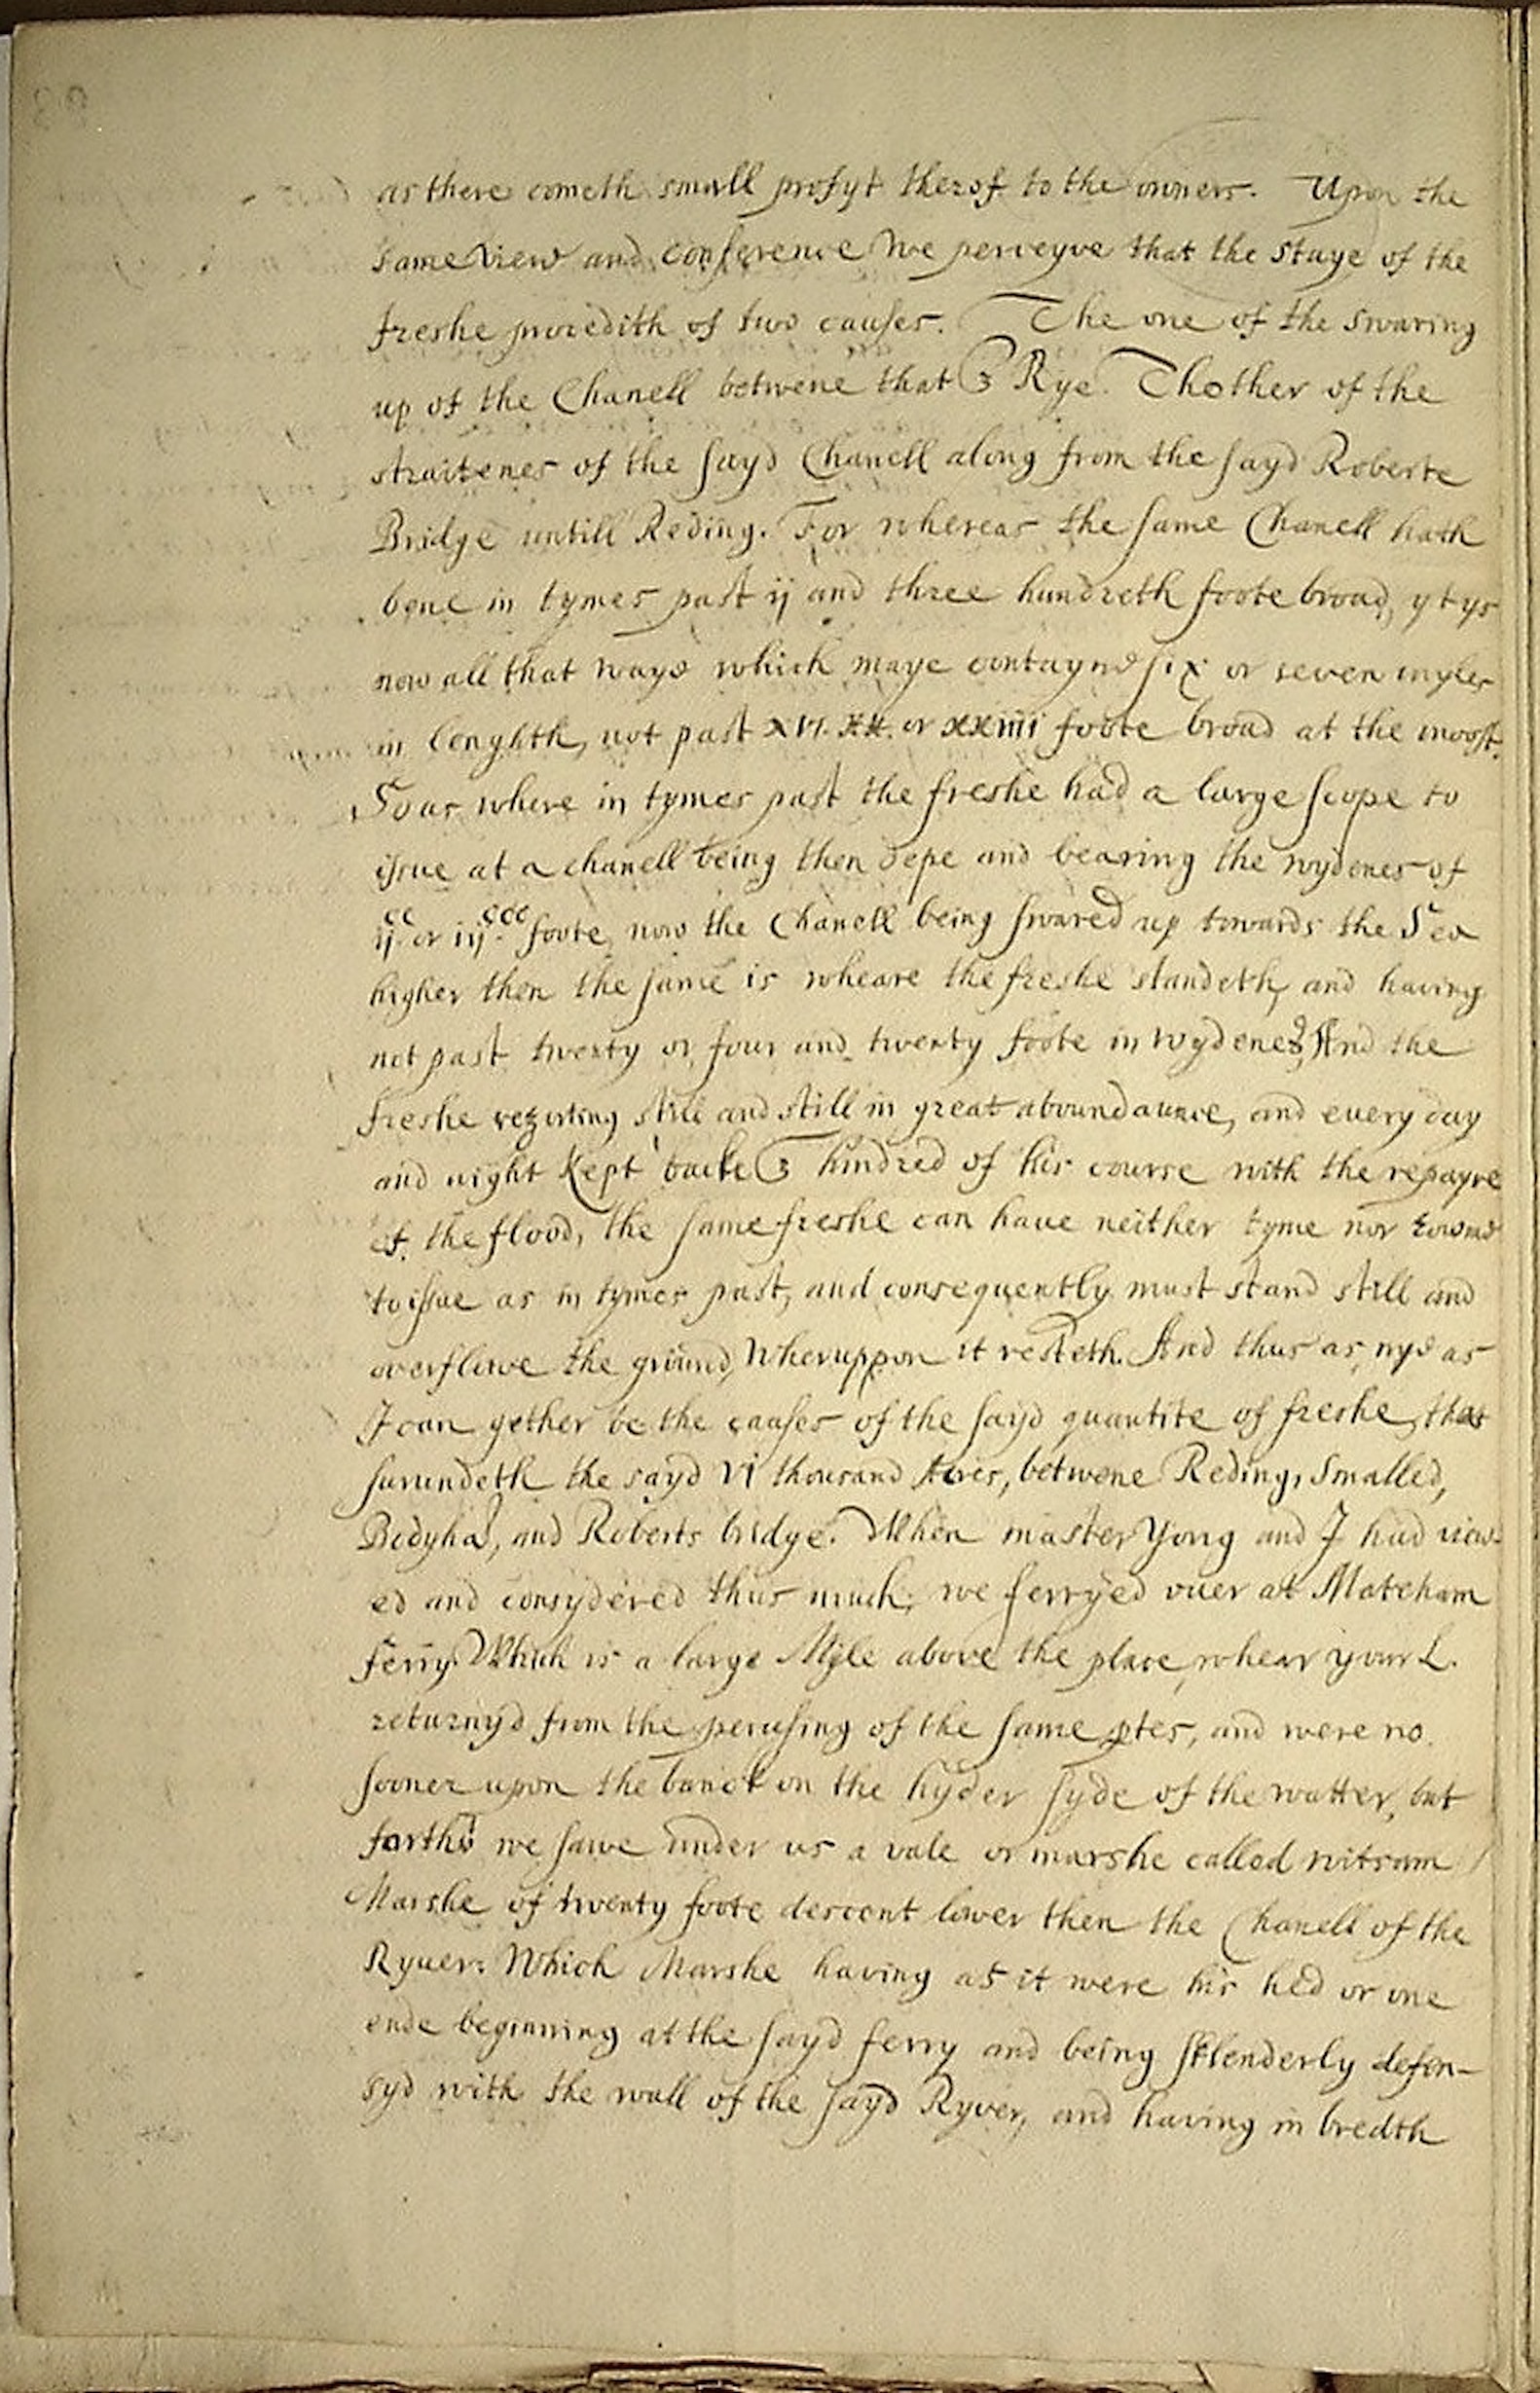 as there cometh small profyt therof to the owners. Upon the
same view and conference we perceyve that the staye of the
freshe procedith of two causes. The one of the swaring
up of the Chanell betwene that & Rye. Thother of the
straitenes of the sayd Chanell along from the sayd Roberte
Bridge untill Reding. For whereas the same Chanell hath
bene in tymes past ij and three hundreth foote broad, yt ys
now all that waye which maye contayne six or seven myles
in lenghth, not past xvi. xx. or xxiiii foote broad at the moost.
So as where in tymes past the freshe had a large scope to
issue at a chanell being then depe and bearing the wydenes of
ij cc or iij ccc foote, now the Chanell being swared up towards the Sea
higher then the same is wheare the freshe standeth, and having
not past twenty or four and twenty foote in wydenes, And the
freshe rezorting still and still in great aboundaunce, and every day
and night kept backe & hindred of his course with the repayre
of the flood, the same freshe can have neither tyme nor
to issue as in tymes past, and consequently must stand still and
overflowe the ground, wheruppon it resteth. And thus as nye as
I can gether be the causes of the sayd quantite of freshe, that
surundeth the sayd vi thousand Acres, betwene Reding, Smalled,
Bodyha, and Roberts bridge. When master Yong and I had view-
ed and consydered thus much, we ferryed over at Mateham
ferry. Which is a large Myle above the place, whear your L.
returnyd from the perusing of the same ptes, and were no
sooner upon the banck on the hyder syde of the watter, but
forthw we sawe under us a vale or marshe called witsam
Marshe of twenty foote descent lower then the Chanell of the
Ryver. Which Marshe having as it were his hed or one
ende beginning at the sayd ferry and being sklenderly defen-
syd with the wall of the sayd Ryver, and having in bredth